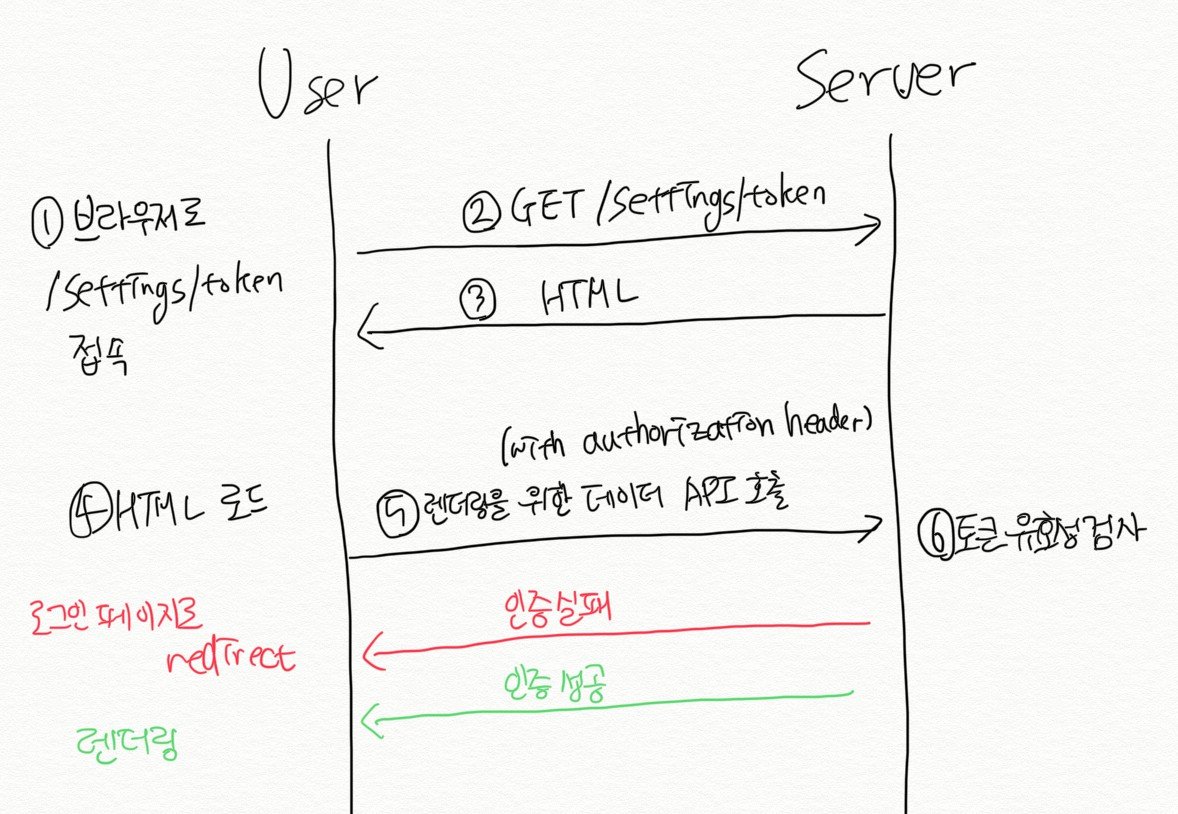 User
Server
① 브라우저로
/settings/token
접속
② GET /settings/token
③ HTML
(with authorization header)
④ HTML 로드
⑤ 렌더링을 위한 데이터 API 호출
⑥ 토큰 유효성 검사
인증실패
로그인 페이지로
redirect
인증 성공
렌더링